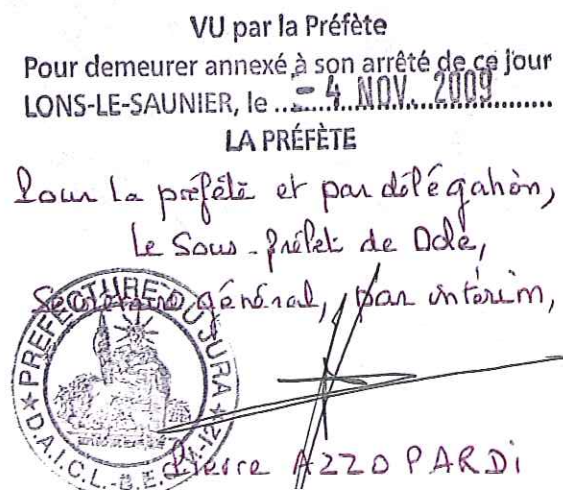 VU par la Préfète
Pour demeurer annexé à son arrêté de ce jour
LONS-LE-SAUNIER, le ..- 4 NOV. 2009..........
LA PRÉFÈTE
Pour la préfète et par délégation,
Le Sous-Préfet de Dole,
Secrétaire général, par intérim,
PREFECTURE DU JURA
D.A.I.C.L.-B.E.
Pierre AZZOPARDI